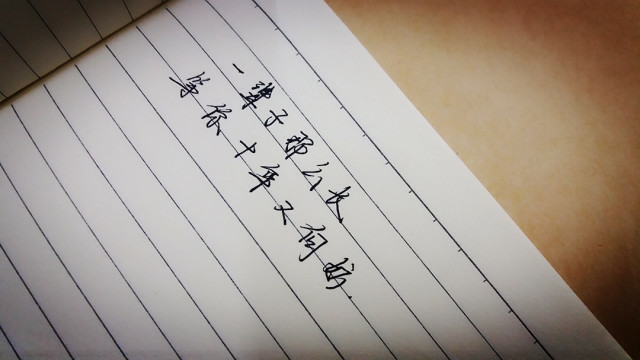 一辈子那么长
等你十年又何妨.